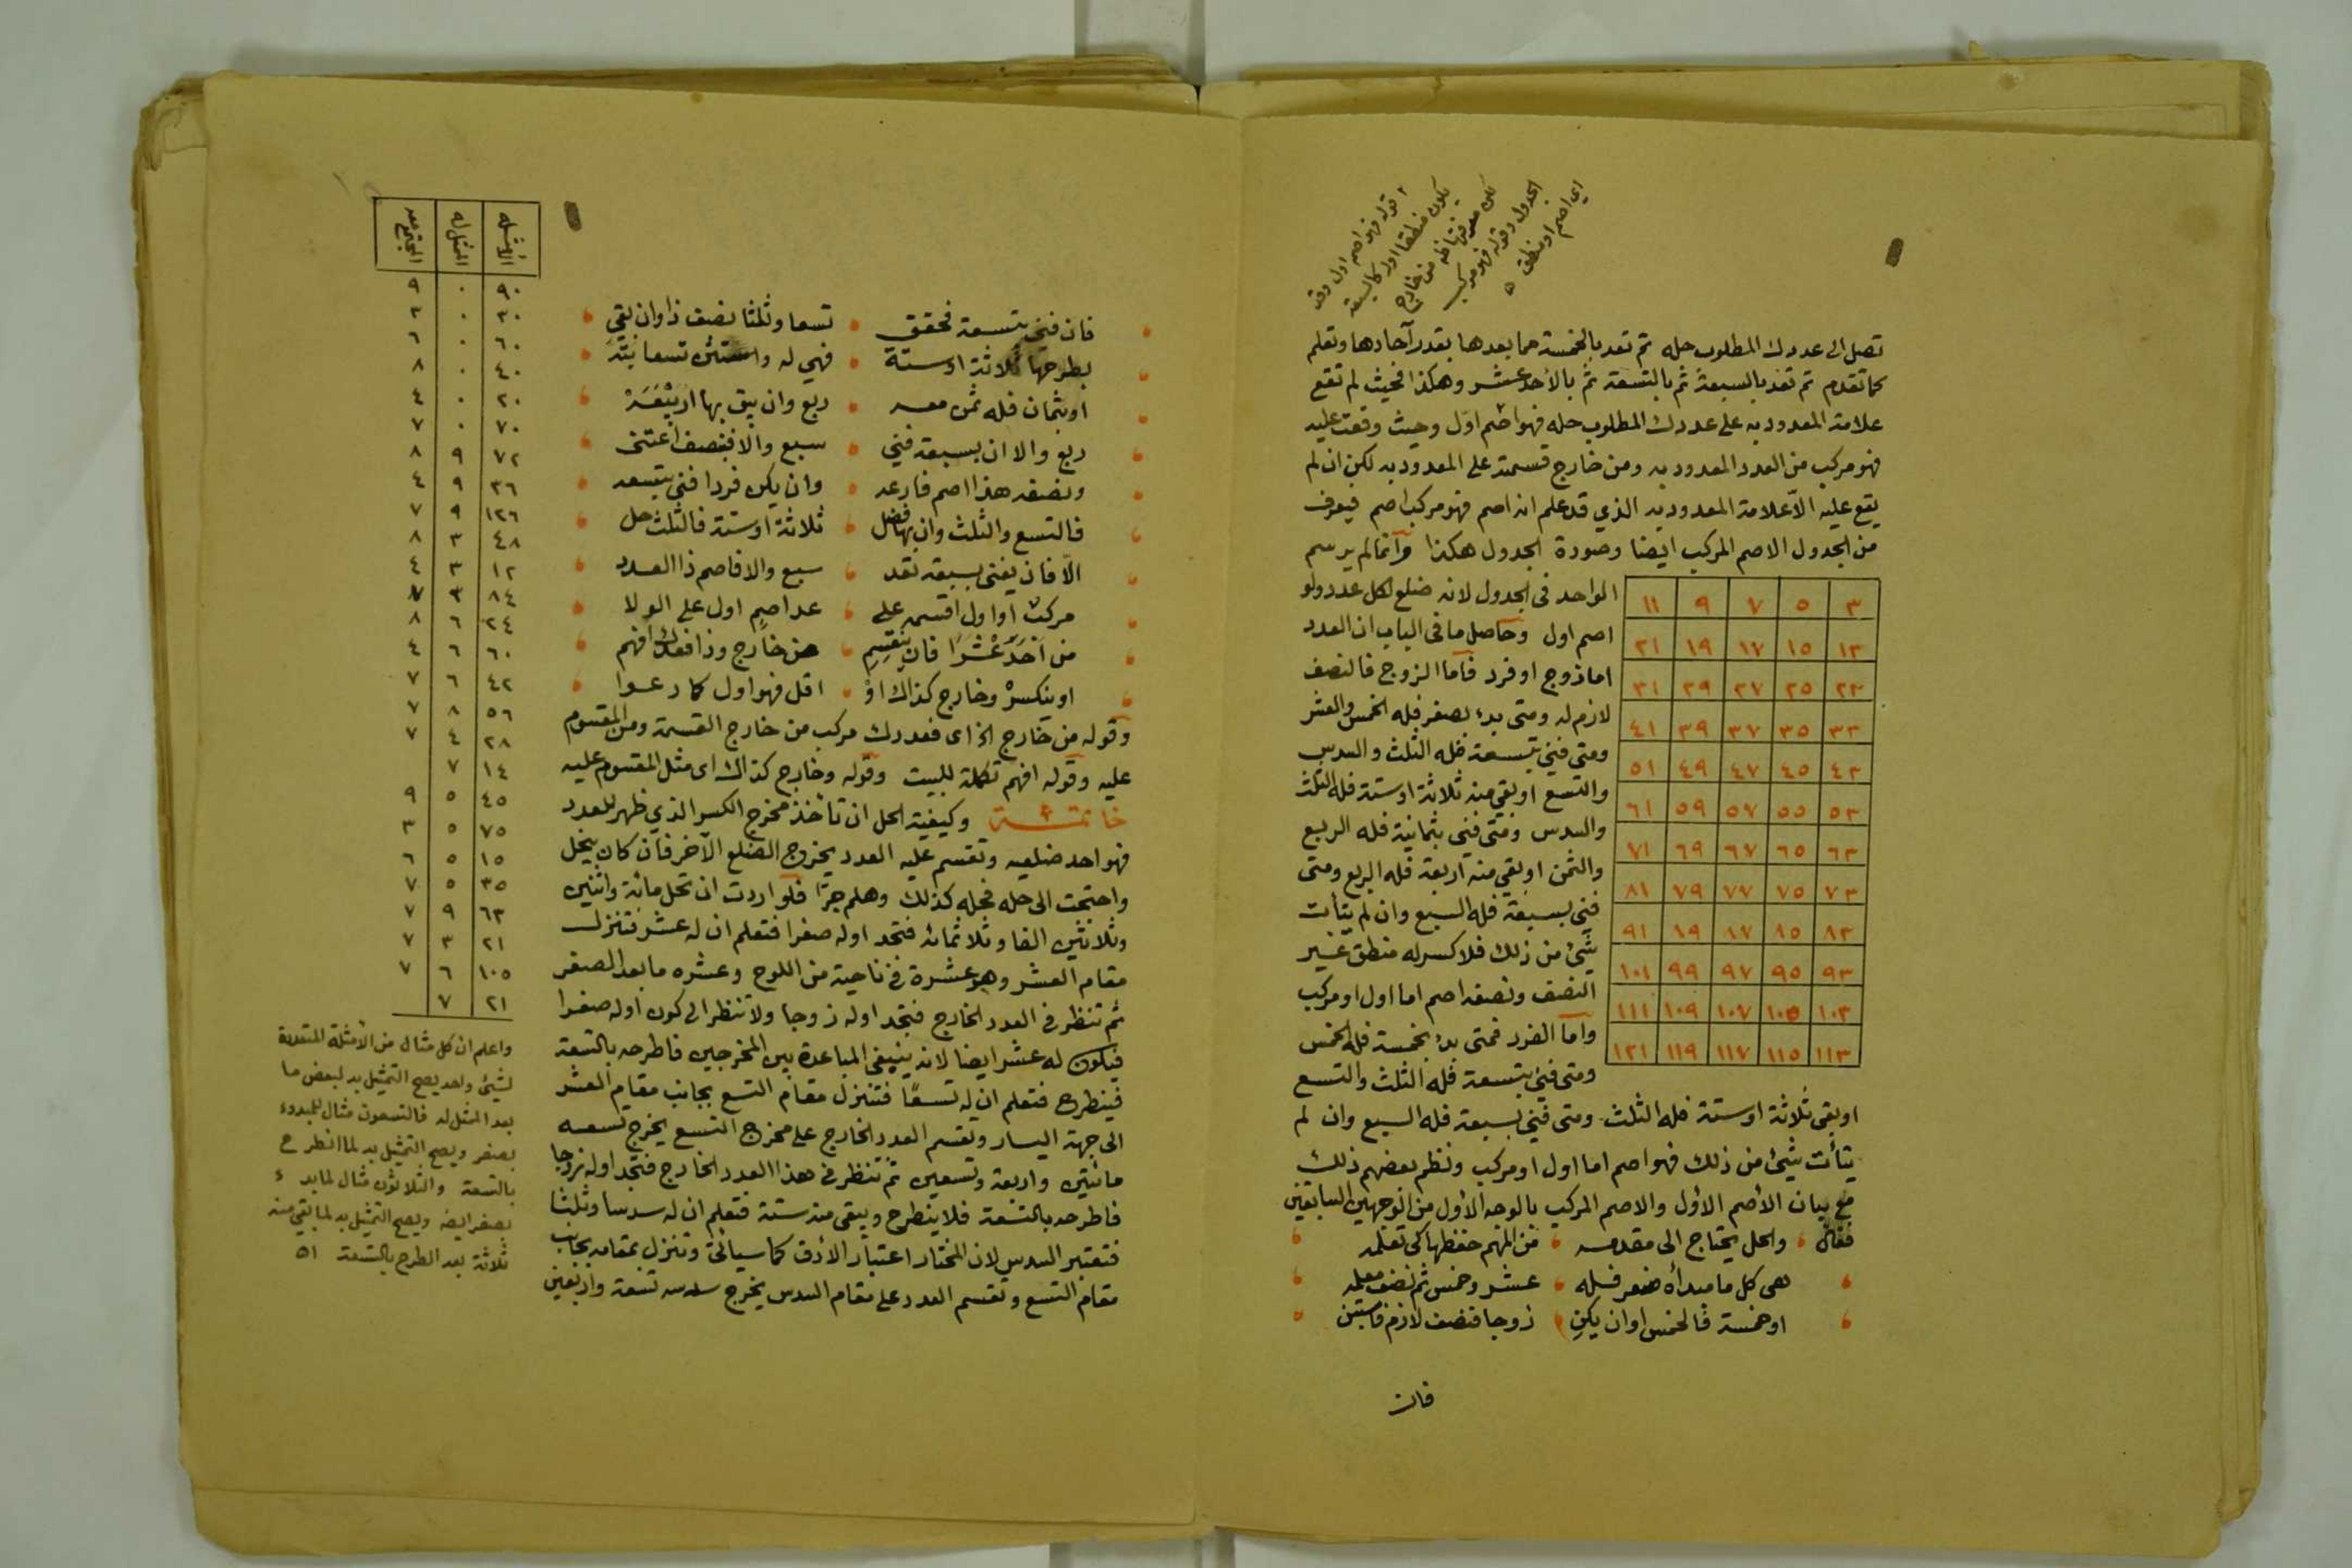 ٢ قوله فهو اصم اول وقد
يكون منطقا اول كالسبعة
الجدول وقوله فهو مركب
اي اصم او منطق ه
تصل الى عددك المطلوب حله ثم تعد بالخمسة مما بعدها بقدر آحادها وتعلم
كما تقدم ثم تعد بالسبعة ثم بالتسعة ثم بالأحد عشر وهكذا فحيث لم تقع
علامة المعدود به على عددك المطلوب حله فهو اصم اول وحيث وقعت عليه
فهو مركب من العدد المعدود به ومن خارج قسمته على المعدود به لكن ان لم
يقع عليه الا علامة المعدود به الذي قد علم انه اصم فهو مركب اصم فيعرف
من الجدول الاصم المركب ايضا وصورة الجدول هكذا وانما لم يرسم
الواحد في الجدول لانه ضلع لكل عدد ولو
اصم اول وحاصل ما في الباب ان العدد
اما زوج او فرد فاما الزوج فالنصف
لازم له ومتى بدء بصفر فله الخمس والعشر
ومتى فني بتسعة فله الثلث والسدس
والتسع او بقي منه ثلاثة او ستة فله الثلث
والسدس ومتى فني بثمانية فله الربع
والثمن او بقي منه اربعة فله الربع ومتى
فني بسبعة فله السبع وان لم يتأت
شيئ من ذلك فلا كسر له منطق غير
النصف ونصفه اصم اما اول او مركب
واما الفرد فمتى بدء بخمسة فله الخمس
ومتى فني بتسعة فله الثلث والتسع
٣ ٥ ٧ ٩ ١١
١٣ ١٥ ١٧ ١٩ ٢١
٢٣ ٢٥ ٢٧ ٢٩ ٣١
٣٣ ٣٥ ٣٧ ٣٩ ٤١
٤٣ ٤٥ ٤٧ ٤٩ ٥١
٥٣ ٥٥ ٥٧ ٥٩ ٦١
٦٣ ٦٥ ٦٧ ٦٩ ٧١
٧٣ ٧٥ ٧٧ ٧٩ ٨١
٨٣ ٨٥ ٨٧ ٨٩ ٩١
٩٣ ٩٥ ٩٧ ٩٩ ١٠١
١٠٣ ١٠٥ ١٠٧ ١٠٩ ١١١
١١٣ ١١٥ ١١٧ ١١٩ ١٢١
او بقي ثلاثة او ستة فله الثلث ومتى فني بسبعة فله السبع وان لم
يتأت شيئ من ذلك فهو اصم اما اول او مركب ونظم بعضهم ذلك
مع بيان الأصم الأول والاصم المركب بالوجه الأول من الوجهين السابقين
فقال والحل يحتاج الى مقدمه من المهم حفظها كي تعلمه
هى كل ما مبدأه صفر فله عشر وخمس ثم نصف معله
او خمسة فالخمس او ان يكن زوجا فنصف لازم فاستبن
فان
فان فني بتسعة فحقق تسعا وثلثا نصف ذا وان بقي
بطرحها ثلاثة او ستة فهي له واستثن تسعا بته
او بثمان فله ثمن معه ربع وان يبق بها اربعة
ربع والا ان بسبعة فني سبع والا فبنصف اعتنى
ونصفه هذا اصم فارعه وان يكن فردا فنى بتسعه
فالتسع والثلث وان بها فضل ثلاثة او ستة فالثلث حل
الا فان يفنى بسبعة تعد سبع والا فاصم ذا العدد
مركب او اول اقسمه على عد اصم اول على الولا
من احد عشرا فان ينقسم من خارج وذا فعددك افهم
او ينكسر وخارج كذاك او اقل فهو اول كما رعوا
وقوله من خارج الخ اى فعددك مركب من خارج القسمة ومن المقسوم
عليه وقوله افهم تكملة للبيت وقوله وخارج كذاك اى مثل المقسوم عليه
خاتمة وكيفية الحل ان تأخذ مخرج الكسر الذي ظهر للعدد
فهو احد ضلعيه وتقسم عليه العدد يخرج الضلع الآخر فان كان ينحل
واحتجت الى حله فحله كذلك وهلم جرا فلو اردت ان تحل مائة واثنين
وثلاثين الفا وثلاثمائة فتجد اوله صفرا فتعلم ان له عشر فتنزل
مقام العشر وهو عشرة في ناحية من اللوح وعشره ما بعد الصفر
ثم تنظر فى العدد الخارج فتجد اوله زوجا ولا تنظر الى كون اوله صفرا
فيكون له عشر ايضا لانه ينبغي المباعدة بين المخرجين فاطرحه بالتسعة
فينطرح فتعلم ان له تسعًا فتنزل مقام التسع بجانب مقام العشر
الى جهة اليسار وتقسم العدد الخارج على مخرج التسع يخرج تسعه
مائتين واربعة وتسعين ثم تنظر فى هذا العدد الخارج فتجد اوله زوجا
فاطرحه بالتسعة فلا ينطرح ويبقى منه ستة فتعلم ان له سدسا وثلثا
فتعتبر السدس لان المختار اعتبار الأدق كما سيأتى وتنزل بمقامه بجانب
مقام التسع وتقسم العدد على مقام السدس يخرج سدسه تسعة واربعين
الامثله الممثل له المجتمع معه
٩٠ ٠ ٩
٣٠ ٠ ٣
٦٠ ٠ ٦
٤٠ ٠ ٨
٢٠ ٠ ٤
٧٠ ٠ ٧
٧٢ ٩ ٨
٣٦ ٩ ٤
١٢٦ ٩ ٧
٤٨ ٣ ٨
١٢ ٣ ٤
٨٤ ٣ ٧
٢٤ ٦ ٨
٦٠ ٦ ٤
٤٢ ٦ ٧
٥٦ ٨ ٧
٢٨ ٤ ٧
١٤ ٧
٤٥ ٥ ٩
٧٥ ٥ ٣
١٥ ٥ ٦
٣٥ ٥ ٧
٦٣ ٩ ٧
٢١ ٣ ٧
١٠٥ ٦ ٧
٢١ ٧
واعلم ان كل مثال من الأمثلة المتعددة
لشيئ واحد يصح التمثيل به لبعض ما
بعد الممثل له فالتسعون مثال للمبدوء
بصفر ويصح التمثيل به لما انطرح
بالتسعة والثلاثون مثال لما بدء
بصفر ايضا ويصح التمثيل به لما بقي منه
ثلاثة بعد الطرح بالتسعة اه